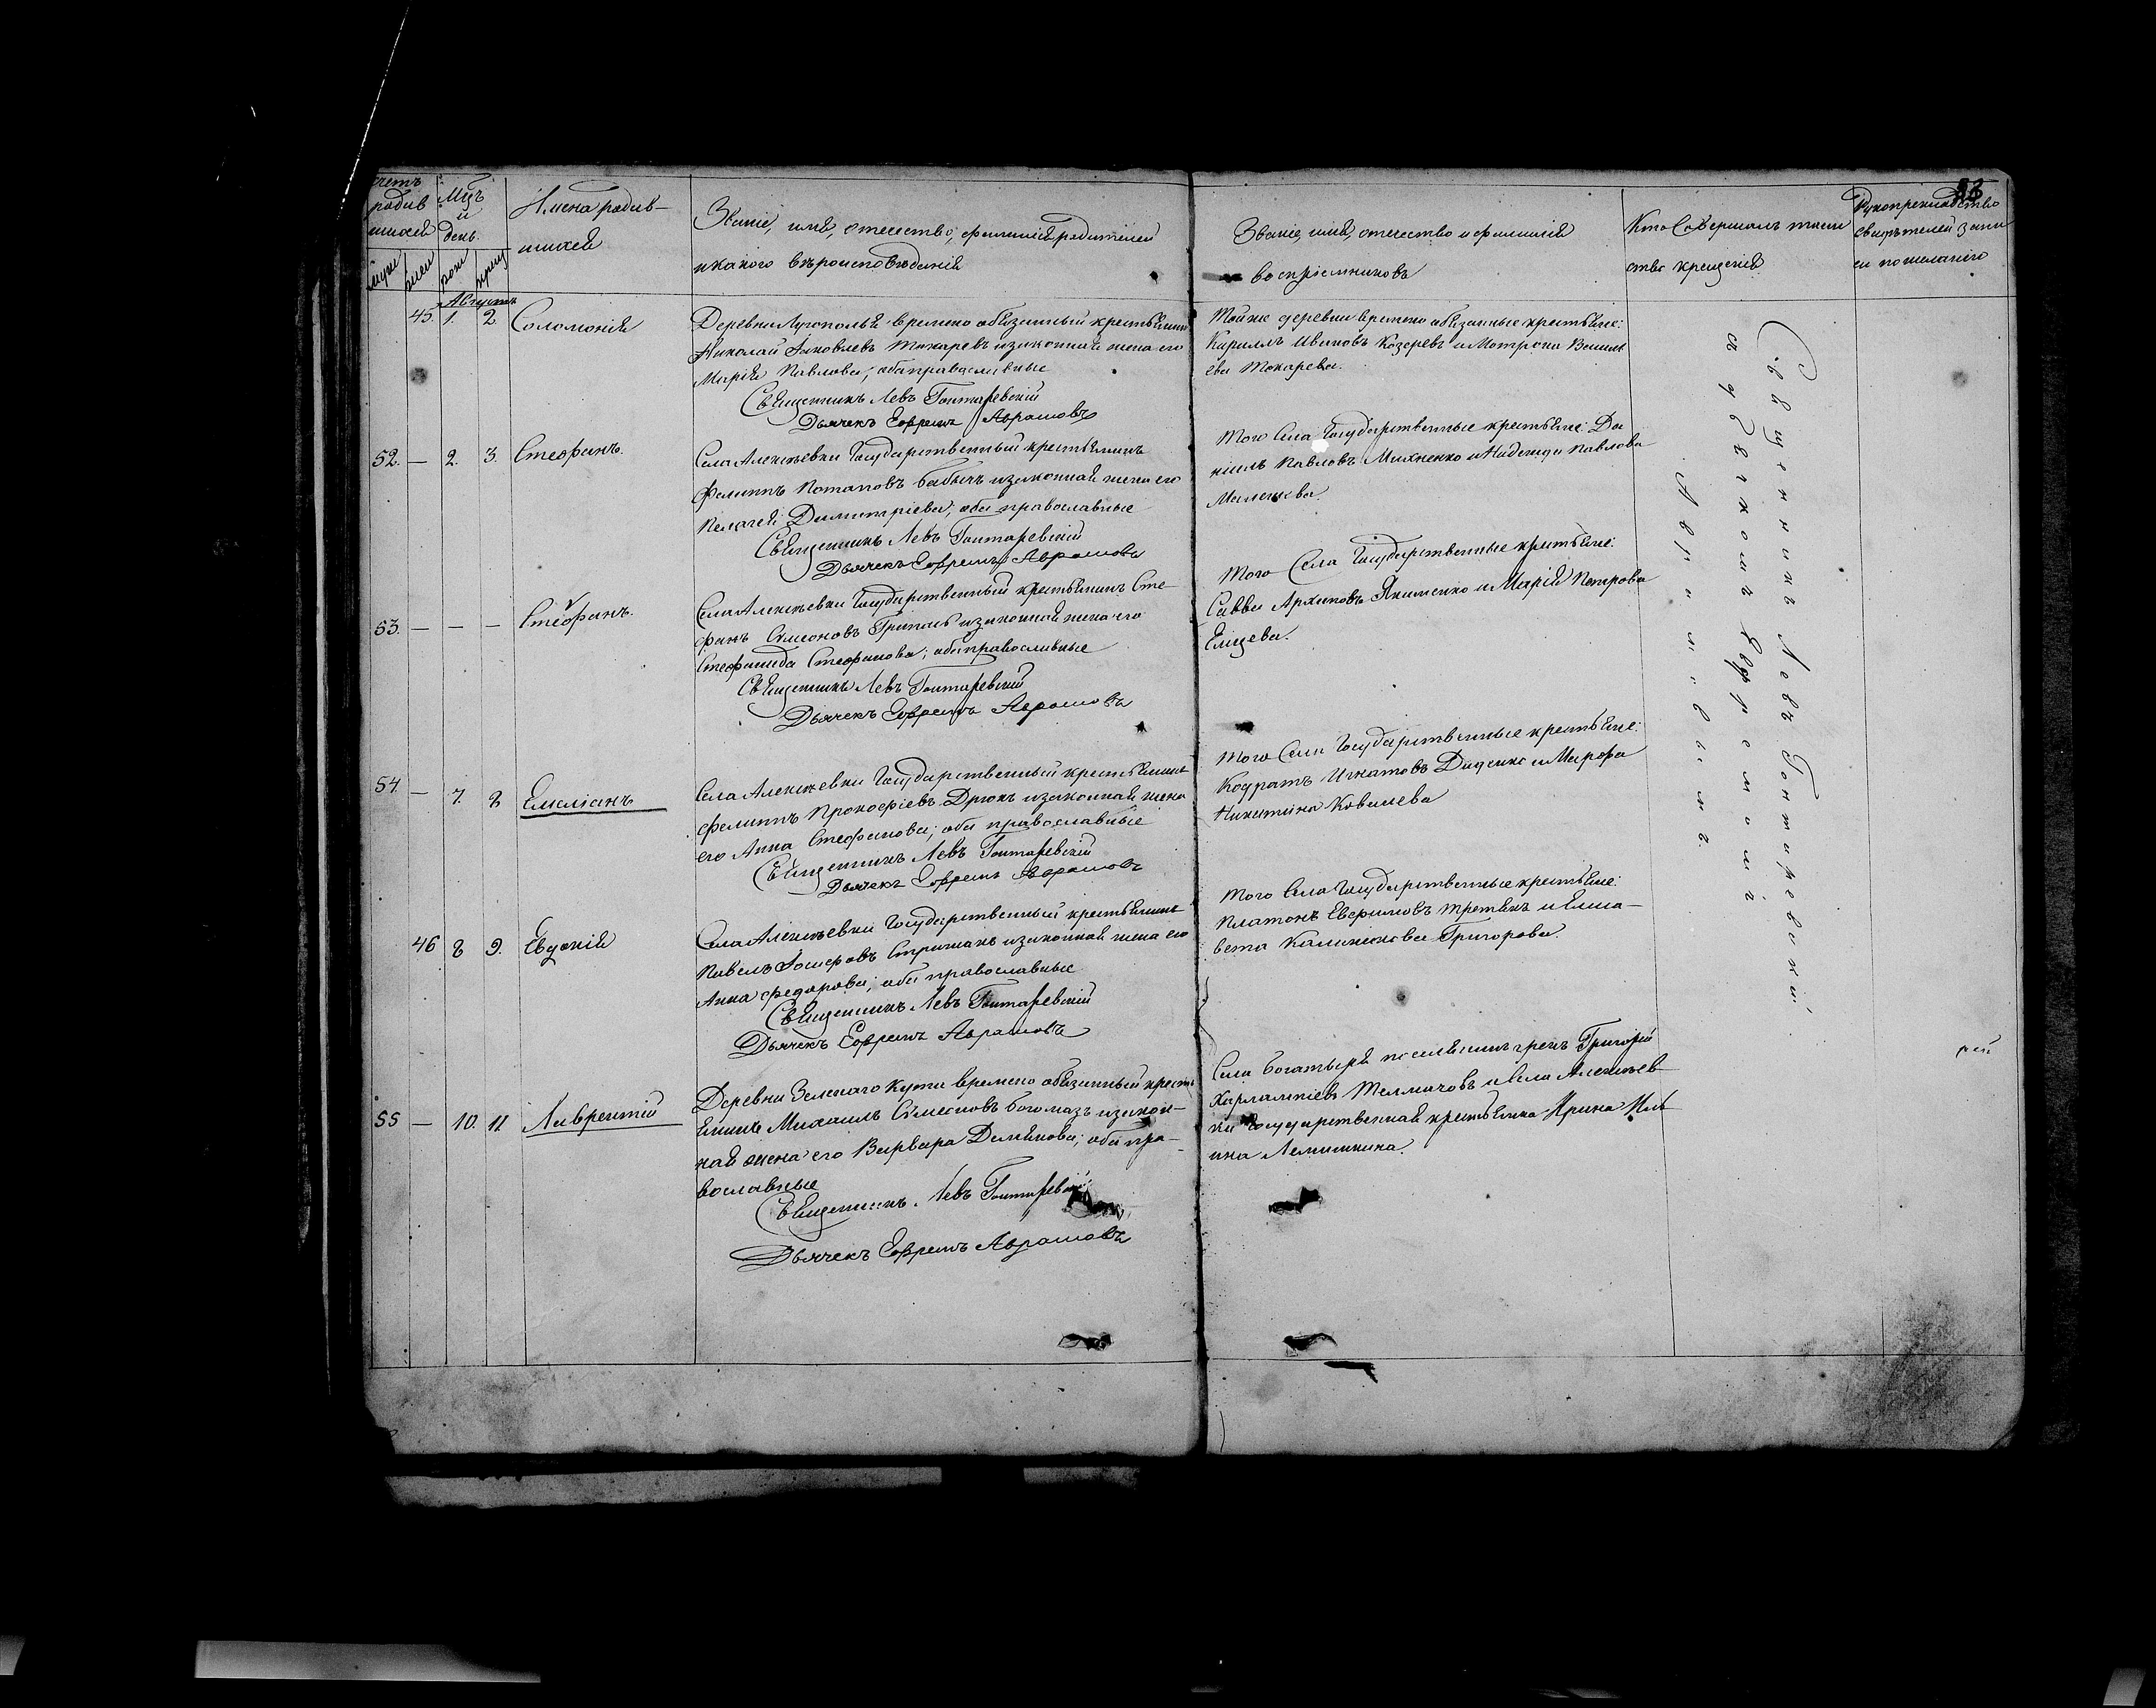 53
счетъ
родив
шихся
Мцъ
и
день.
Имена родив-
шихся
Званіе, имя, отчество, фамилія родителей
и какого вѣроисповѣданія
Званіе, имя, отчество и фамилія
воспріемниковъ
Кто Совершалъ таин
ство крещенія
Рукоприкладство
свидѣтелей запи
си по желанію
муж
жен
рож
крещ
Августъ
45. 1. 2. Соломонія
Деревни Лугополья временно обязанный крестьянинъ
Николай Яковлевъ Токаревъ и законная жена его
Марія Павлова; оба православные
Священникъ Левъ Гонтаревскій
Дьячекъ Ефремъ Аврамовъ
Тойже деревни временно обязанные крестьяне:
Кириллъ Ивановъ Козеревъ и Матрона Василь
ева Токарева.
52. — 2. 3. Стефанъ.
Села Алексѣевки Государственный крестьянинъ
Филиппъ Потаповъ Бабычъ и законная жена его
Пелагея Димитріева; оба православные
Священникъ Левъ Гонтаревскій
Дьячекъ Ефремъ Аврамовъ
Того Села Государственные крестьяне: Да
ніилъ Павловъ Михненко и Надежда Павлова
53. — — — Стефанъ.
Села Алексѣевки Государственный крестьянинъ Сте-
фанъ Симеоновъ и законная жена его
Стефанида Стефанова; оба православные
Священникъ Левъ Гонтаревскій
Дьячекъ Ефремъ Аврамовъ
Того Села Государственные крестьяне:
Савва Архиповъ Якименко и Марія Петрова
54. — 7. 8 Емеліанъ
Села Алексѣевки Государственный крестьянинъ
Филиппъ Прокофіевъ Дрюкъ и законная жена
его Анна Стефанова; оба православные
Священникъ Левъ Гонтаревскій
Дьячекъ Ефремъ Аврамовъ
Того Села Государственные крестьяне:
Кодратъ Игнатовъ Диденко и Марфа
Никитина Ковалева
46 8 9. Евдокія
Села Алексѣевки Государственный крестьянинъ
Павелъ Іосифовъ Стрижакъ и законная жена его
Анна Федорова; оба православные
Священникъ Левъ Гонтаревскій
Дьячекъ Ефремъ Аврамовъ
Того Села Государственные крестьяне:
Платонъ Евфимовъ Третякъ и Елиса-
вета Калиникова Григорова.
55 — 10. 11. Лаврентій
Деревни Зеленаго Кута временно обязанный кресть
янинъ Михаилъ Симеоновъ Богомазъ и закон-
ная жена его Варвара Демянова; оба пра-
вославные
Священникъ Левъ Гонтаревскій
Дьячекъ Ефремъ Аврамовъ
Села Богатыря поселянинъ грекъ Григорій
Харлампіевъ Телмачовъ и села Алексѣев
ки государственная крестьянка Ирина Иль
ина Лемишкина.
Священникъ Левъ Гонтаревскій.
съ дьячкомъ Ефремомъ
Аврамовымъ